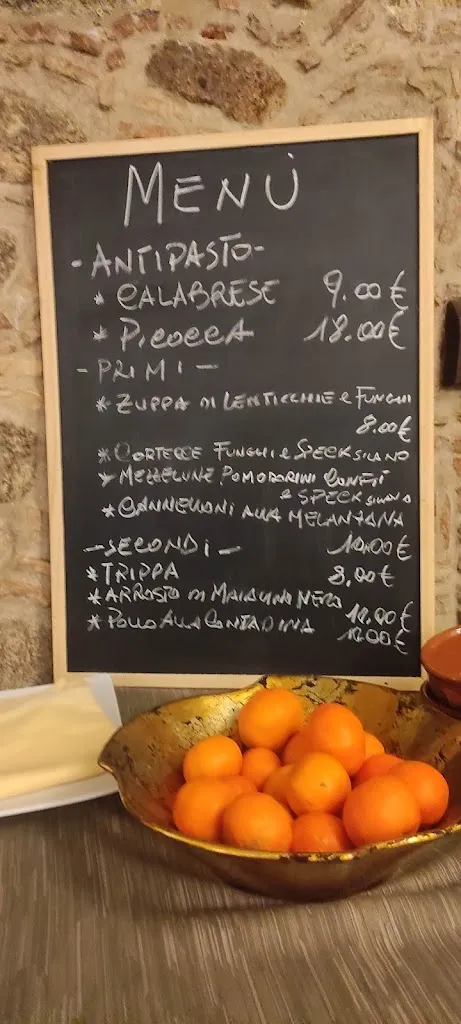 MENÙ
- ANTIPASTO -
* CALABRESE 9.00 €
* PICOCCA 18.00 €
- PRIMI -
* ZUPPA DI LENTICCHIE e FUNGHI
8.00 €
* CORTECCE FUNGHI e SPECK SILANO
* MEZZELUNE POMODORINI CONFIT
e SPECK SILANO
* CANNELLONI ALLA MELANZANA
- SECONDI - 10,00 €
* TRIPPA 8,00 €
* ARROSTO DI MAIALINO NERO
* POLLO ALLA CONTADINA